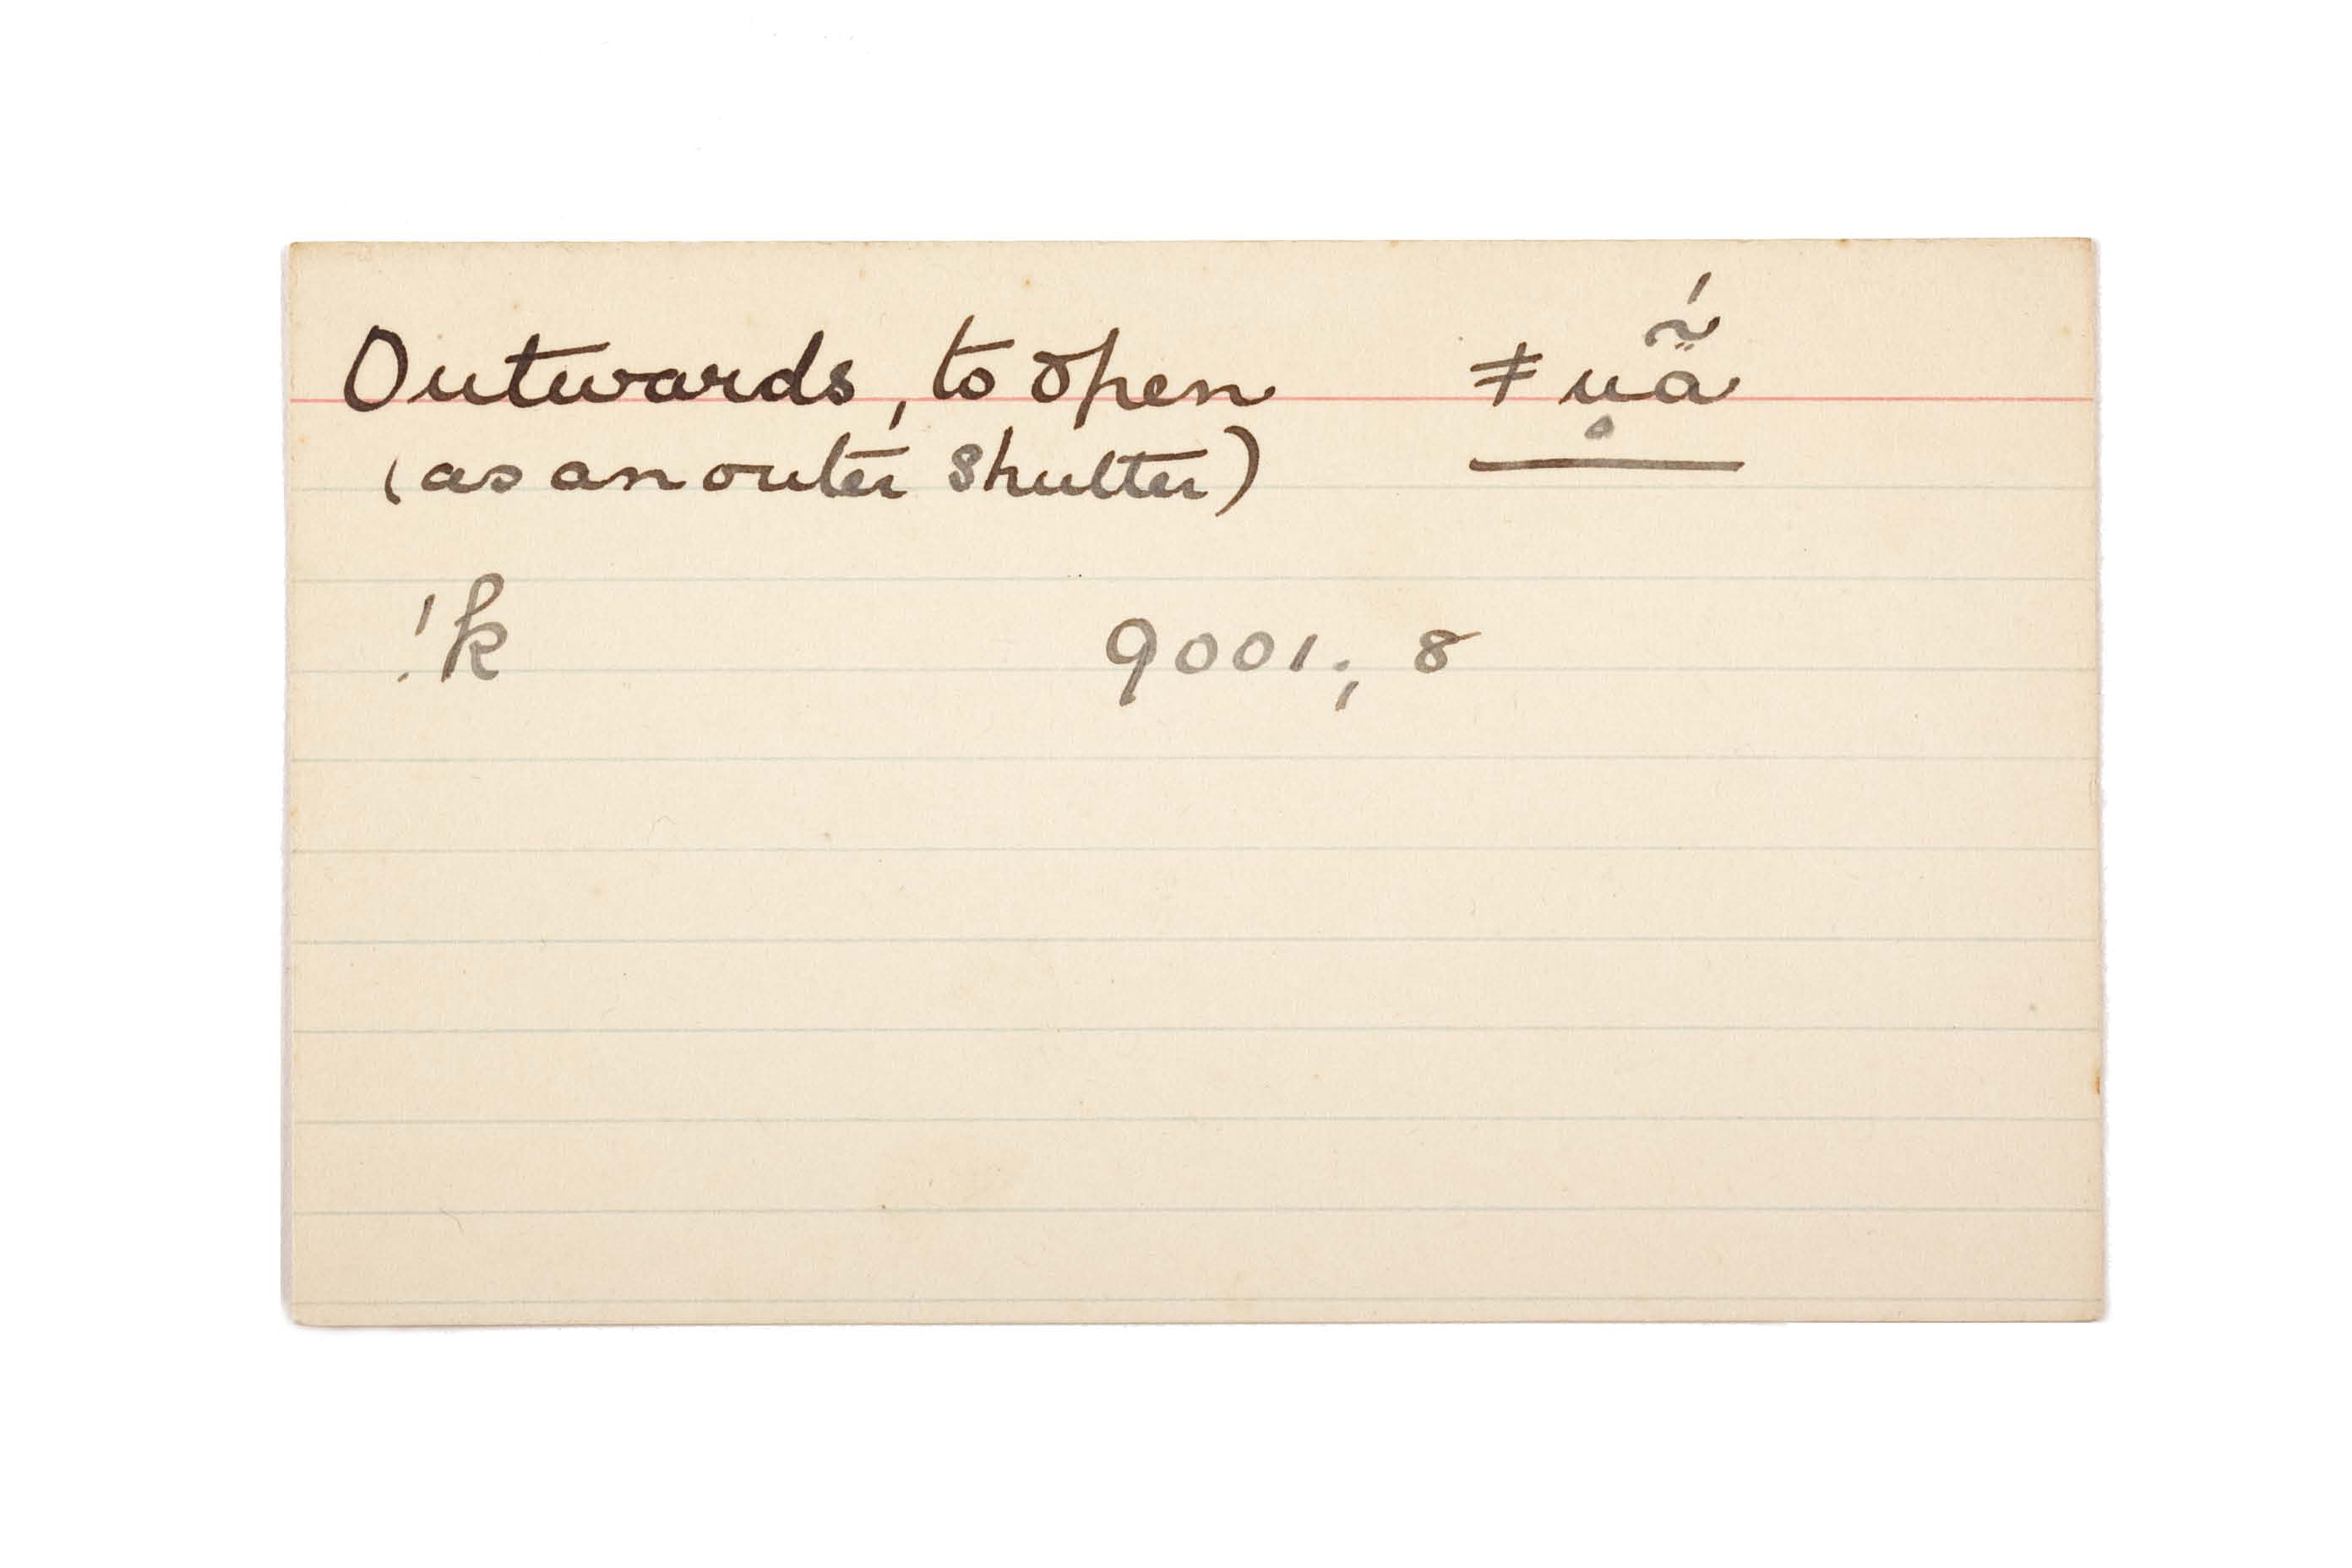 Outwards, to open ǂu̥ã̈́
(as an outer shutter)
!k 9001; 8